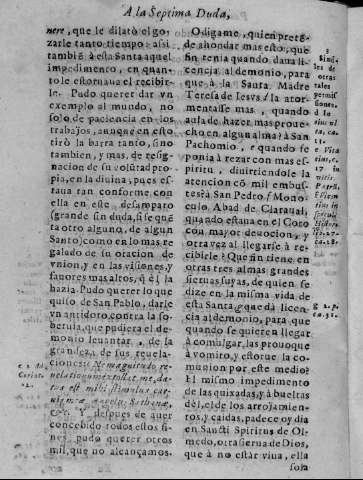 A la Septima Duda,
nere, que le dilatò el go-
zarle tanto tiempo: assi
tambiẽ à esta Santa aquel
impedimento, en quan-
to le estoruaua el recibir-
le. Pudo querer dar vn
exemplo al mundo, no
solo de paciencia en los
trabajos, aunque en esto
tirò la barra tanto, sino
tambien, y mas, de resig-
nacion de su volũtad pro-
pia, en la diuina, pues es-
taua tan conforme con
ella en este desamparo
(grande sin duda, si se quẽ-
ta otro alguno, de algun
Santo) como en lo mas re
galado de su oracion de
vnion, y en las visiones, y
fauores mas altos, q̃ el la
hazia. Pudo querer lo que
quiso de San Pablo, darle
vn antidoto contra la so-
berula, que pudiera el de-
monio leuantar, de la
grandeza de sus reuela-
ciones: Ne magnitudo re-
uelationum extollat me, da-
tus est mihi stimulus car-
nis meæ Angelus Sathanæ,
&c. Y despues de auer
concebido todos estos fi-
nes, pudo querer otros
mil, que no alcançamos.
O digame, quien pretẽ-
de ahondar mas esto, que
fin tenia quando daua li-
cencia al demonio, para
que à la Santa Madre
Teresa de Iesvs la ator-
mentasse mas, quando a
aua de hazer mas proue-
cho en algun alma? à San
Pachomio, quando se
ponia à rezar con mas es-
piritu, diuirtiendole la
atencion cõ mil embus-
tes? à San Pedro Mono-
culo, Abad de Claraual,
quando estaua en el Coro
con mayor deuocion, y
otra vez al llegarse à re-
cibirle? Que fin tiene en
otras tres almas grandes
sieruas suyas, de quien se
dize en la misma vida de
esta Santa, que dà licen-
cia al demonio, para que
quando se quieren llegar
à comulgar, las prouoque
à vomito, y estorue la co-
munion por este medio?
El mismo impedimento
de las quixadas, y à bueltas
dèl, el de los arrojamien-
tos, y caidas, padece oy dia
en Sancti Spiritus de Ol-
medo, otra sierua de Dios,
que à no estar viua, ella
sola